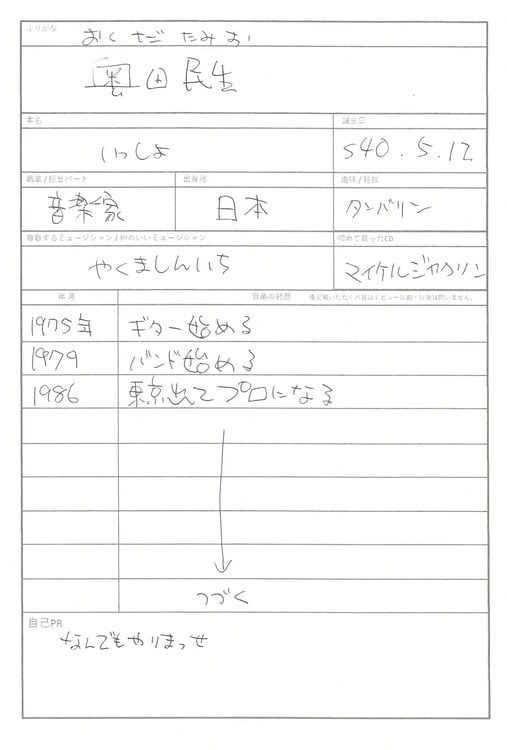 ふりがな
おくだ たみお
奥田民生
本名
誕生日
いっしょ
S40.5.12
職業/担当パート
出身地
趣味/特技
音楽家
日本
タンバリン
尊敬するミュージシャン/仲のいいミュージシャン
初めて買ったCD
やくましんいち
マイケルジャクソン
年月
音楽の経歴
1975年
ギター始める
1979
バンド始める
1986
東京出てプロになる
つづく
自己PR
なんでもやりまっせ